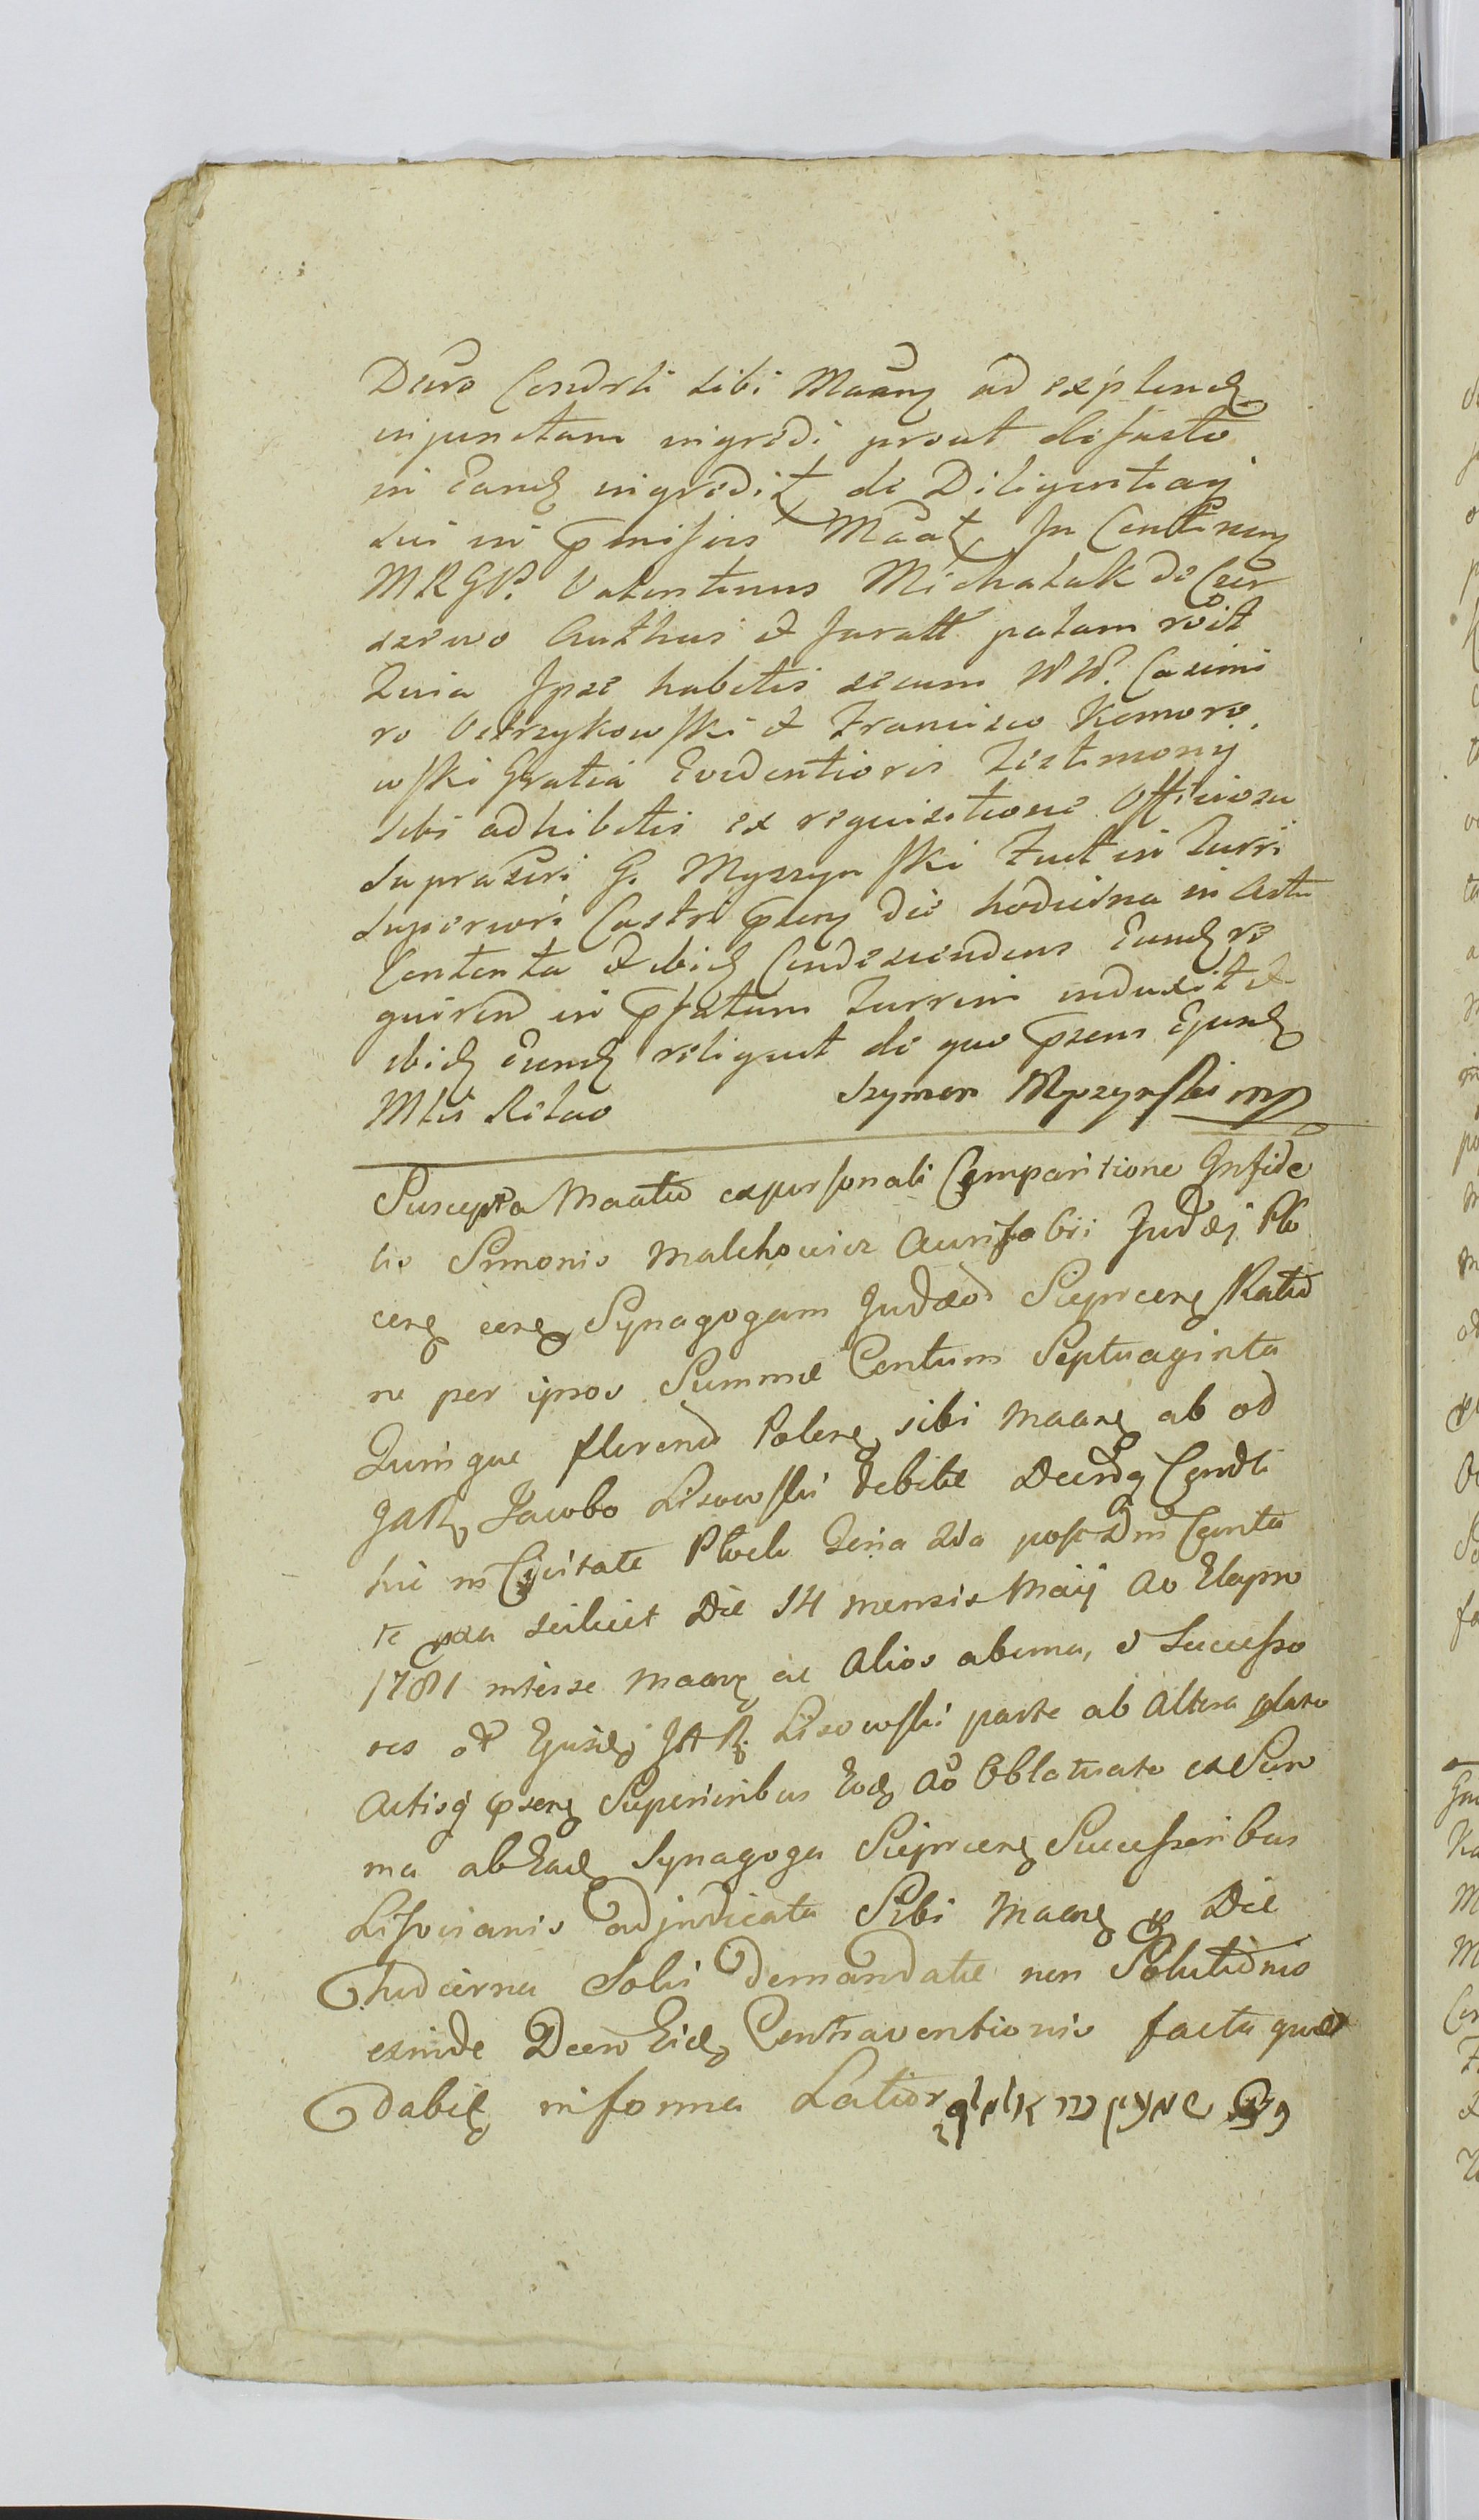 Duro Condrti sibi Maang ad explend
injunctam ingredi prout de facto
in Eand ingredit de Diligentiaq
sui in pmissis Maat. In Contineng
MRGP. Valentinus Michalak de Czer
serwo Authus et Juratt palam roit
Quia Ipse habitis secum WW. Casimi
ro Ostrzykowski et Francisco Komoro
wski Gratia Evidentioris Testimonij
sibi adhibitis ex requisitione Officiosa
suprascri G. Myszynski Fuit in Turri
Superiori Castri psens die hodierna in Actu
Contenta et ibid Condescendens Eund re
quirend in pfatam Turrim induxit et
ibid Eund reliquit de quo psens Ejusd
Mtis Relao Szymon Myszynski mp
Suscepta Maatio expersonali Comparitione Infide
lis Simonis Malchowicz Aurifabri Judæi Plo
ceng ceng Synagogam Judæor Sieprceng Ratio
ne per ipsos Summæ Centum Septuaginta
Quinque flirend Poleng sibi Maang ab od
Jacobo Lisowski debitæ Condti
hic in Civitate Plock Feria 2da post Dni Canta
te pxa scilicet Die 14 mensis Maij Ao Elapso
1781 interse Maang ac Alios ab una, et Successo
res od Ejusd Lisowski parte ab Altera
Actisq pseng Superioribus Eod Ao Oblatisato ex Sum
ma ab Ead Synagoga Sieprceng Successoribus
Lisovianis adjudicata Sibi Maang p Die
hodierna Solvi demandatæ non Solutionis
exinde Eid Contraventionis facta quæ
dabit in forma Latior שמעון